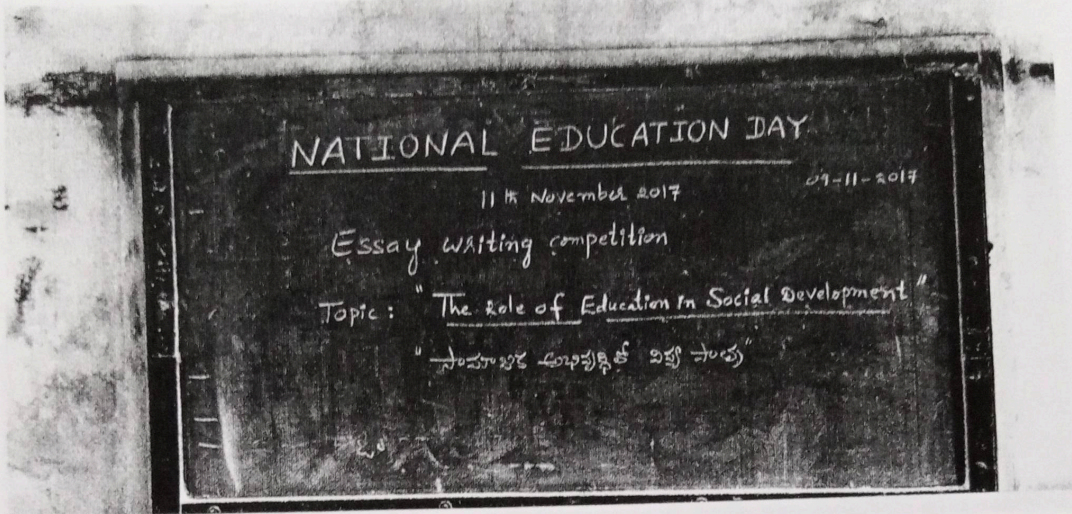 NATIONAL EDUCATION DAY
09-11-2017
11th November 2017
Essay writing competition
Topic : "The role of Education in Social Development"
"సామాజిక అభివృద్ధిలో విద్య పాత్ర"